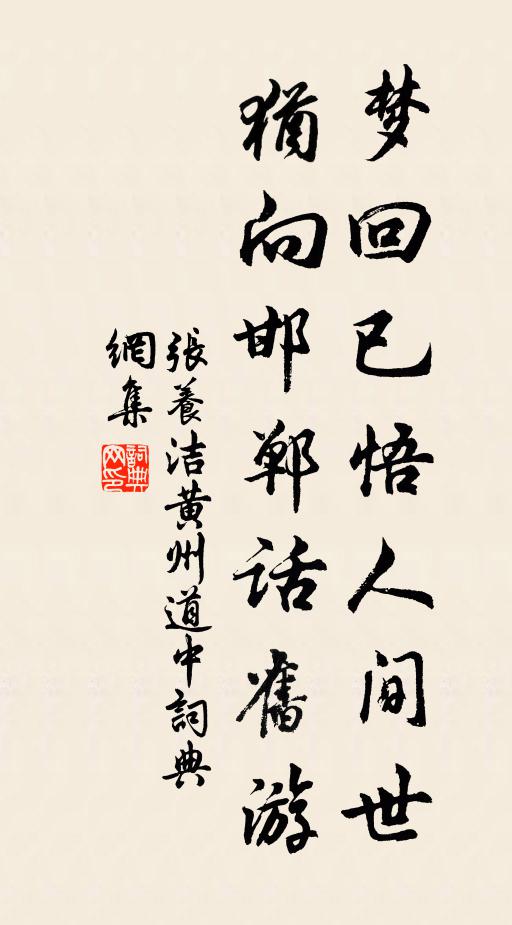 梦回已悟人间世
犹向邯郸话舊游
張養洁黄州道中詞典
網集
詞典网印